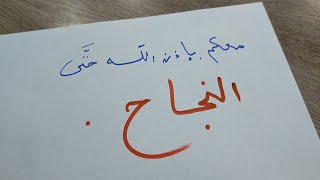 معكم بإذن اللـه حتَّى
النجاح .